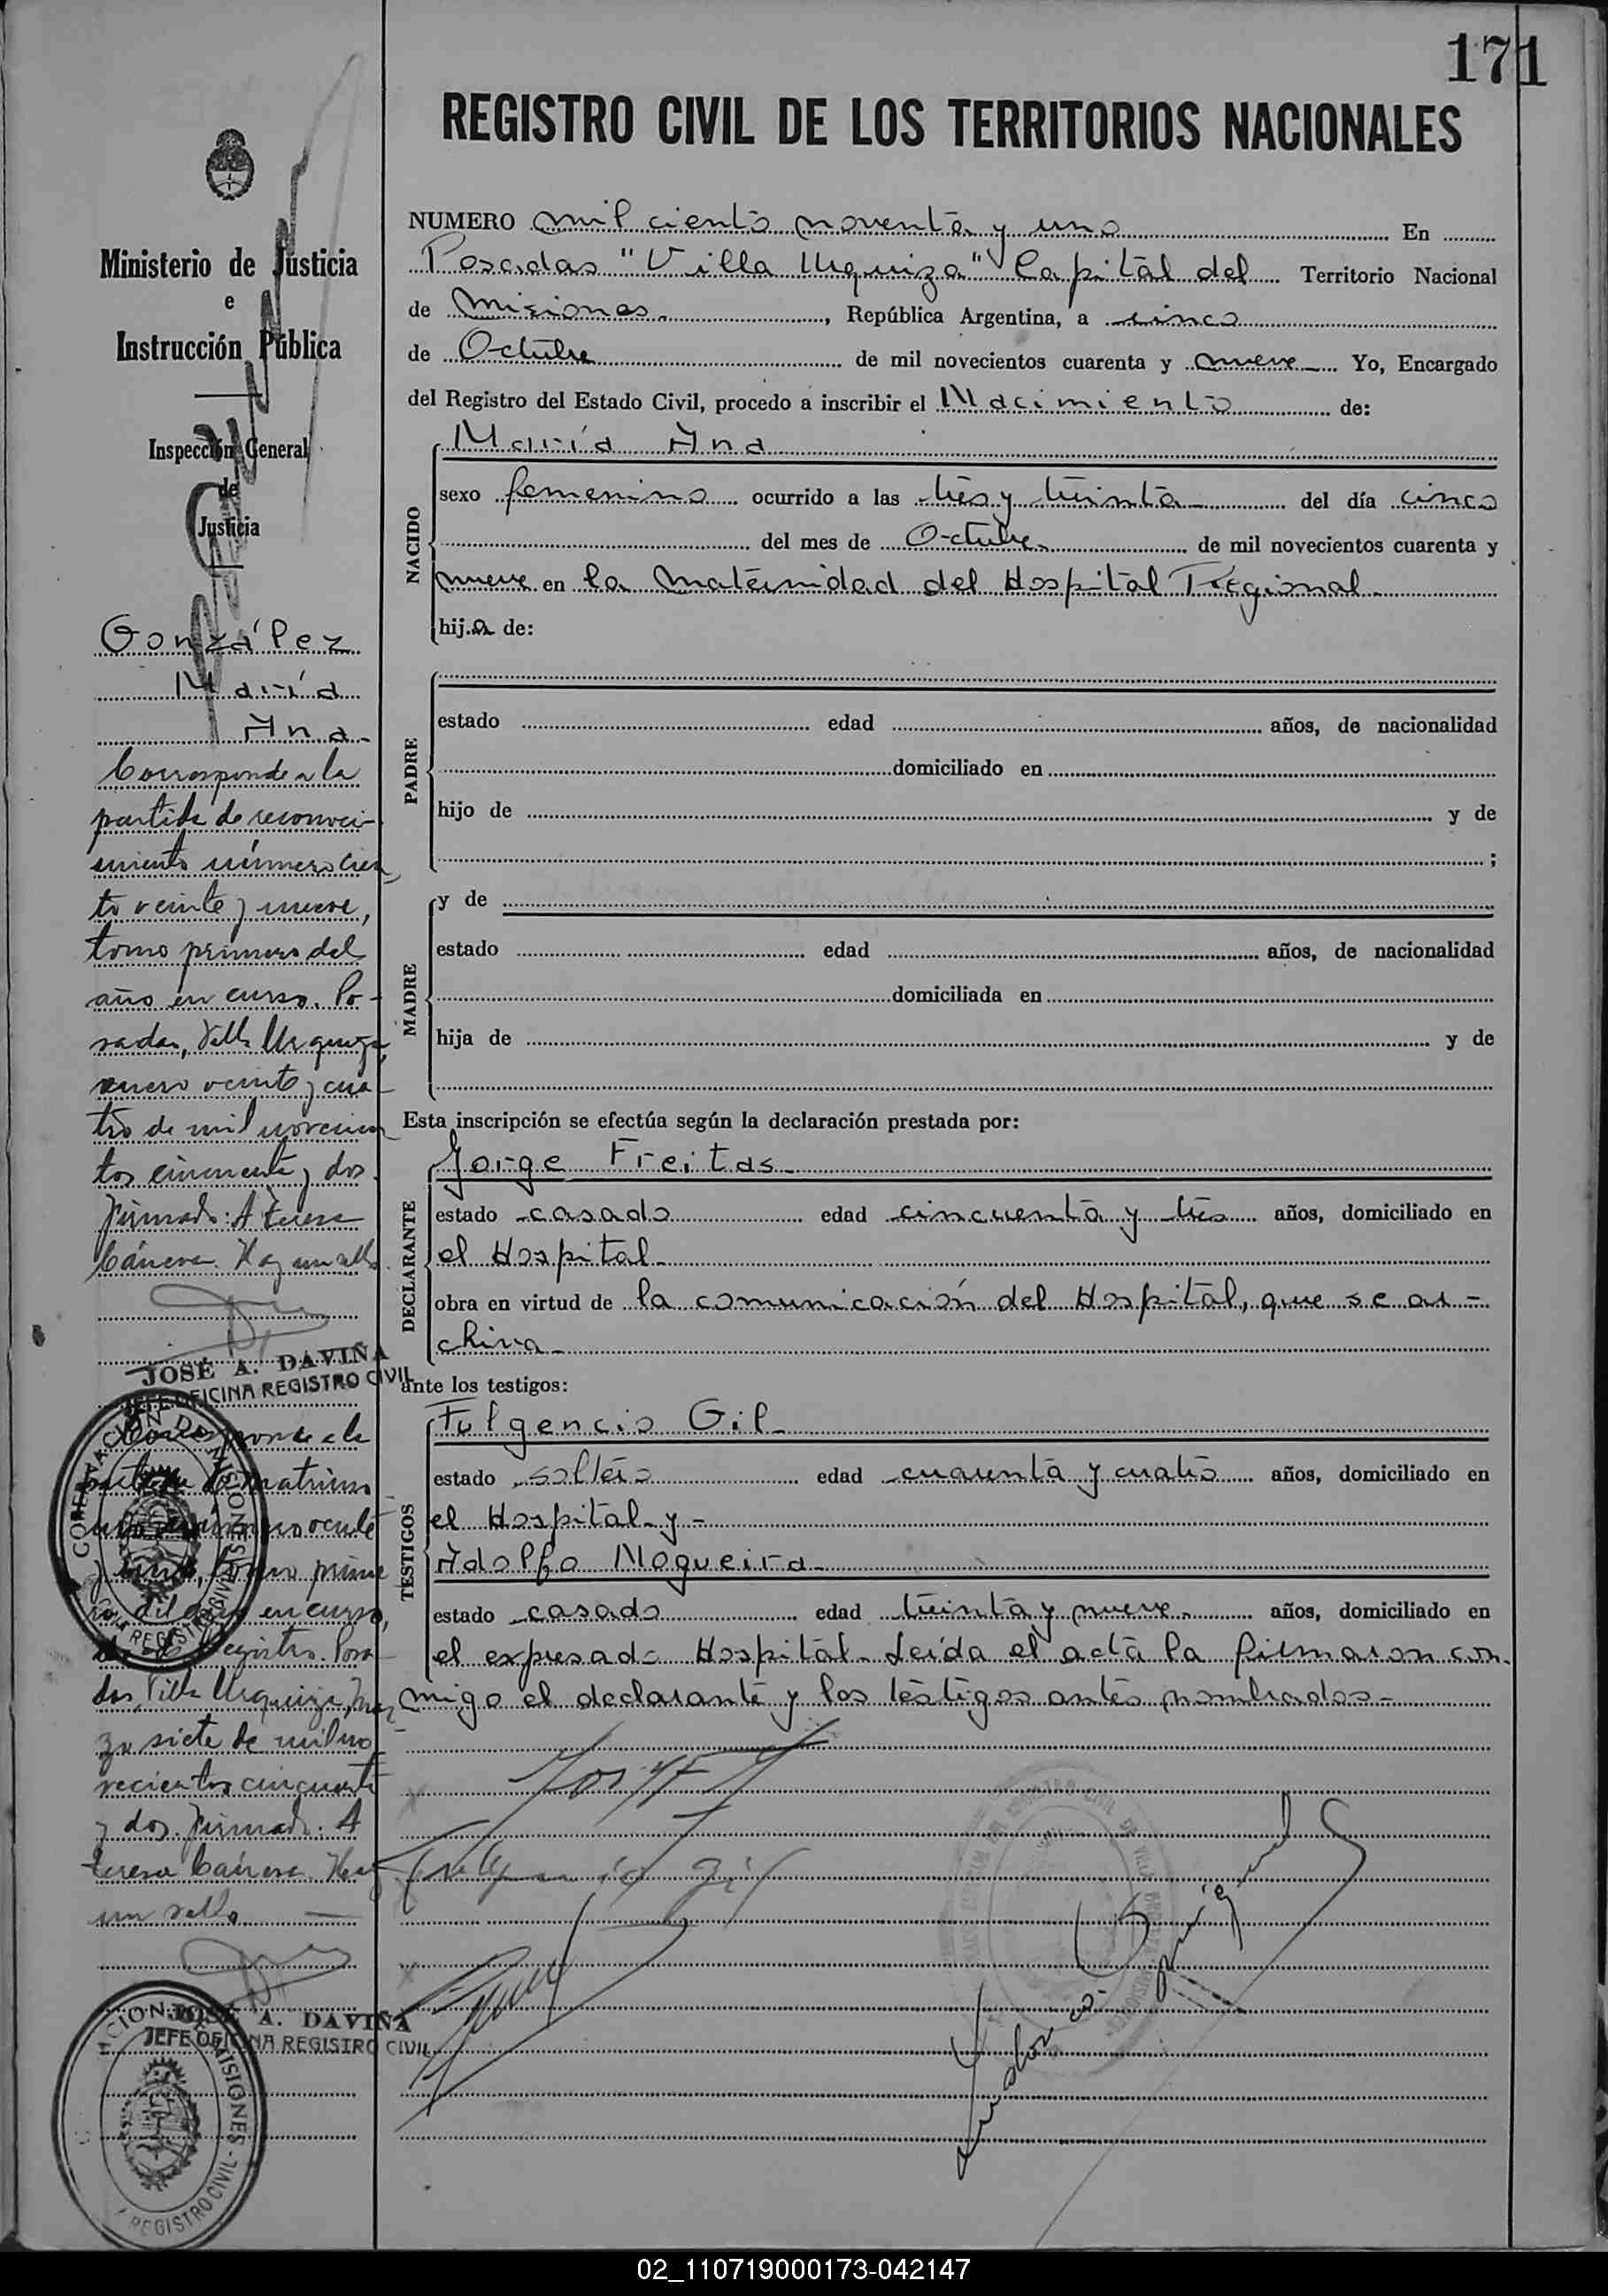 171
REGISTRO CIVIL DE LOS TERRITORIOS NACIONALES
Ministerio de Justicia
e
Instrucción Pública
Inspección General
de
Justicia
González
María
Ana
Corresponde a la
partida de reconoci-
miento número cien
to veinte y nueve,
tomo primero del
año en curso. Po-
sadas, Villa Urquiza
enero veinte y cua-
tro de mil novecien
tos cincuenta y dos.
Firmado: A Teresa
Cánova. Hay un sello
JOSÉ A. DAVIÑA
JEFE OFICINA REGISTRO CIVIL
Corresponde a la
partida de matrimo
nio número ochte
y uno, tomo prime
ro del año en curso,
Registro. Posa-
das, Villa Urquiza, mar
zo siete de mil no
vecientos cincuenta
y dos. Firmado: A
teresa Cánova. Hay
un sello
JOSÉ A. DAVIÑA
JEFE OFICINA REGISTRO CIVIL
GOBERNACION DE MISIONES
REGISTRO CIVIL
NUMERO mil ciento noventa y uno En
Posadas "Villa Urquiza" Capital del Territorio Nacional
de Misiones, República Argentina, a cinco
de Octubre de mil novecientos cuarenta y nueve Yo, Encargado
del Registro del Estado Civil, procedo a inscribir el Nacimiento de:
NACIDO
María Ana
sexo femenino ocurrido a las tres y treinta del día cinco
del mes de Octubre de mil novecientos cuarenta y
nueve en la Maternidad del Hospital Regional.
hija de:
PADRE
estado edad años, de nacionalidad
domiciliado en
hijo de y de
;
MADRE
y de
estado edad años, de nacionalidad
domiciliada en
hija de y de
Esta inscripción se efectúa según la declaración prestada por:
DECLARANTE
Jorge Freitas
estado casado edad cincuenta y tres años, domiciliado en
el Hospital
obra en virtud de la comunicación del Hospital, que se ar-
chiva
ante los testigos:
TESTIGOS
Fulgencio Gil
estado soltero edad cuarenta y cuatro años, domiciliado en
el Hospital y -
Adolfo Nogueira
estado casado edad treinta y nueve años, domiciliado en
el expresado Hospital. Leída el acta la firmaron con-
migo el declarante y los testigos antes nombrados-
Fulgencio Gil
02_110719000173-042147